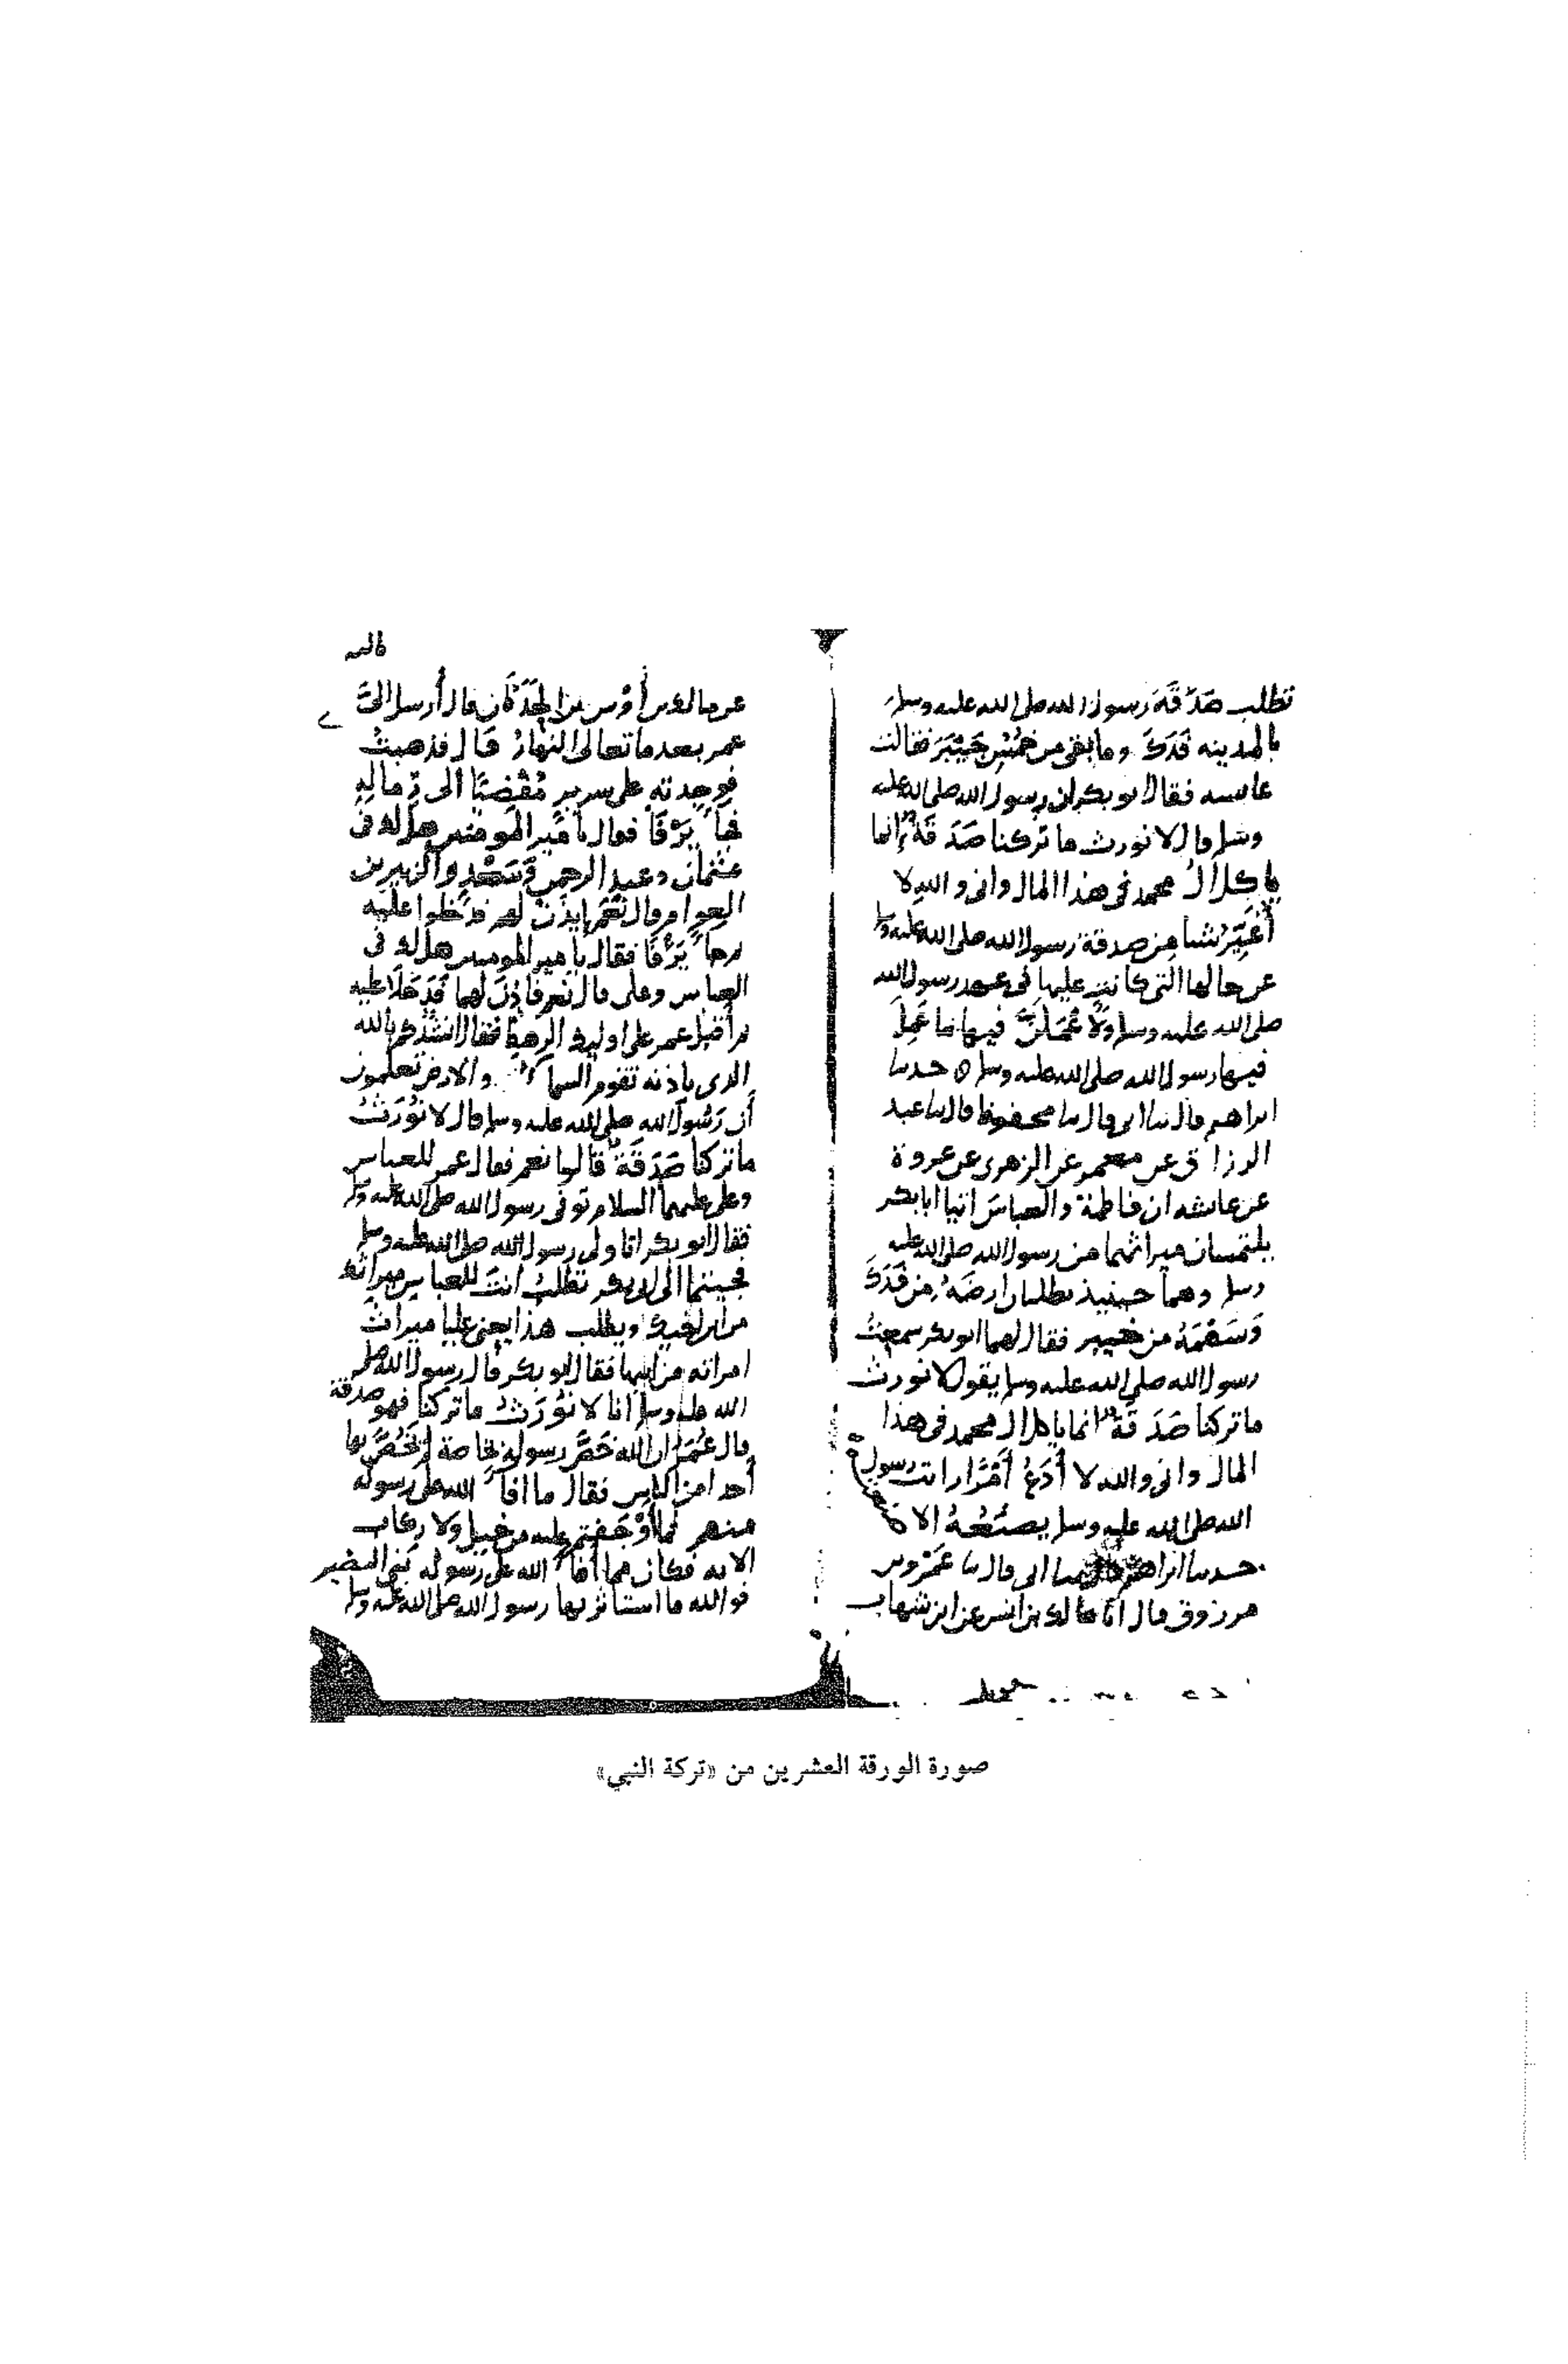 تطلب صَدَقَةَ رسول الله صلى الله عليه وسلم
بالمدينه فَدَكَ وما بقى من خُمْسِ خَيْبَرَ فقالت
عايسه فقال ابو بكر ان رسول الله صلى الله عليه
وسلم قال لا نورث ما تركنا صَدَقَةٌ إنما
ياكل آل محمد فى هذا المال وانى والله لا
أُغَيِّرُ شيا مِن صدقة رسول الله صلى الله عليه وسلم
عن حالها التى كانت عليها فى عهد رسول الله
صلى الله عليه وسلم وَلَأَعْمَلَنَّ فيها بما عَمِلَ
فيها رسول الله صلى الله عليه وسلم ه حدسا
ابراهيم قال سا ابى قال سا محفوظ قال سا عبد
الرزاق عن معمر عن الزهرى عن عروة
عن عايشه ان فاطمة والعباس اتيا ابا بكر
يلتمسان ميراثهما من رسول الله صلى الله عليه
وسلم وهما حينيذ يطلبان ارضَهُ مِن فَدَكَ
وَسَهْمَهُ من خيبر فقال لهما ابو بكر سمعتُ
رسول الله صلى الله عليه وسلم يقول لا نورث
ما تركنا صَدَقَةٌ انما ياكل ال محمد فى هذا
المال وانى والله لا أَدَعُ أَمْرًا رايت رسول
الله صلى الله عليه وسلم يصنَعُهُ الا صنعته
حدسا ابراهيم قال سا ابى قال سا عَمْرُو بن
مرزوق قال انا مالك بن أنس عن ابن شهاب
قالىه
عن مالك بن أَوْس بن الحَدَثَان قال أرسل الىَّ
عمر بعد ما تعالى النهارُ قال فذهبتُ
فوجدته على سريرٍ مُفْضِيًا الى رِمَالِهِ
فجآَ يَرْفَا فقال يا أمير المومنين هل لك فى
عثمان وعبد الرحمن وَسَعْدٍ والزبير بن
العوام قال نَعَم ايذَنْ لهم فدخلوا عليه
ثم جآَ يَرْفَا فقال يا امير المومنين هل لك فى
العباس وعلى قال نعم فأذِنَ لهما فَدَخَلَا عليه
ثم أقبل عمر على اوليك الرهطِ فقال انشُدُكم بالله
الذى باذنه تقوم السمآ والارض تعلمون
أن رَسُولَ الله صلى الله عليه وسلم قال لا نُوْرَثُ
ما تركنا صَدَقَةٌ قالوا نعم فقال عمر للعباس
وعلى عليهما السلام توفى رسول الله صلى الله عليه وسلم
فقال ابو بكر انا ولى رسول الله صلى الله عليه وسلم
فجيتما الى ابى بكر تطلُبُ انتَ للعباس ميراثه
من ابن اخيك ويطلب هذا يعنى عليًا ميراث
امراته من ابيها فقال ابو بكر قال رسول الله صلى
الله عليه وسلم انا لا نُوْرَثُ ما تركنا فهو صدقة
قال عُمَرُ ان الله خَصَّ رسوله بخاصة لم يَخُصَّ بها
أحدا من الناس فقال ما افآَ الله على رسوله
منهم فما أَوْجَفتم عليه من خيل ولا ركاب
الايه فكان مما أفآ الله على رسوله بَنى النضير
فوالله ما استاثر بها رسول الله صلى الله عليه وسلم
صورة الورقة العشرين من «تركة النبي»